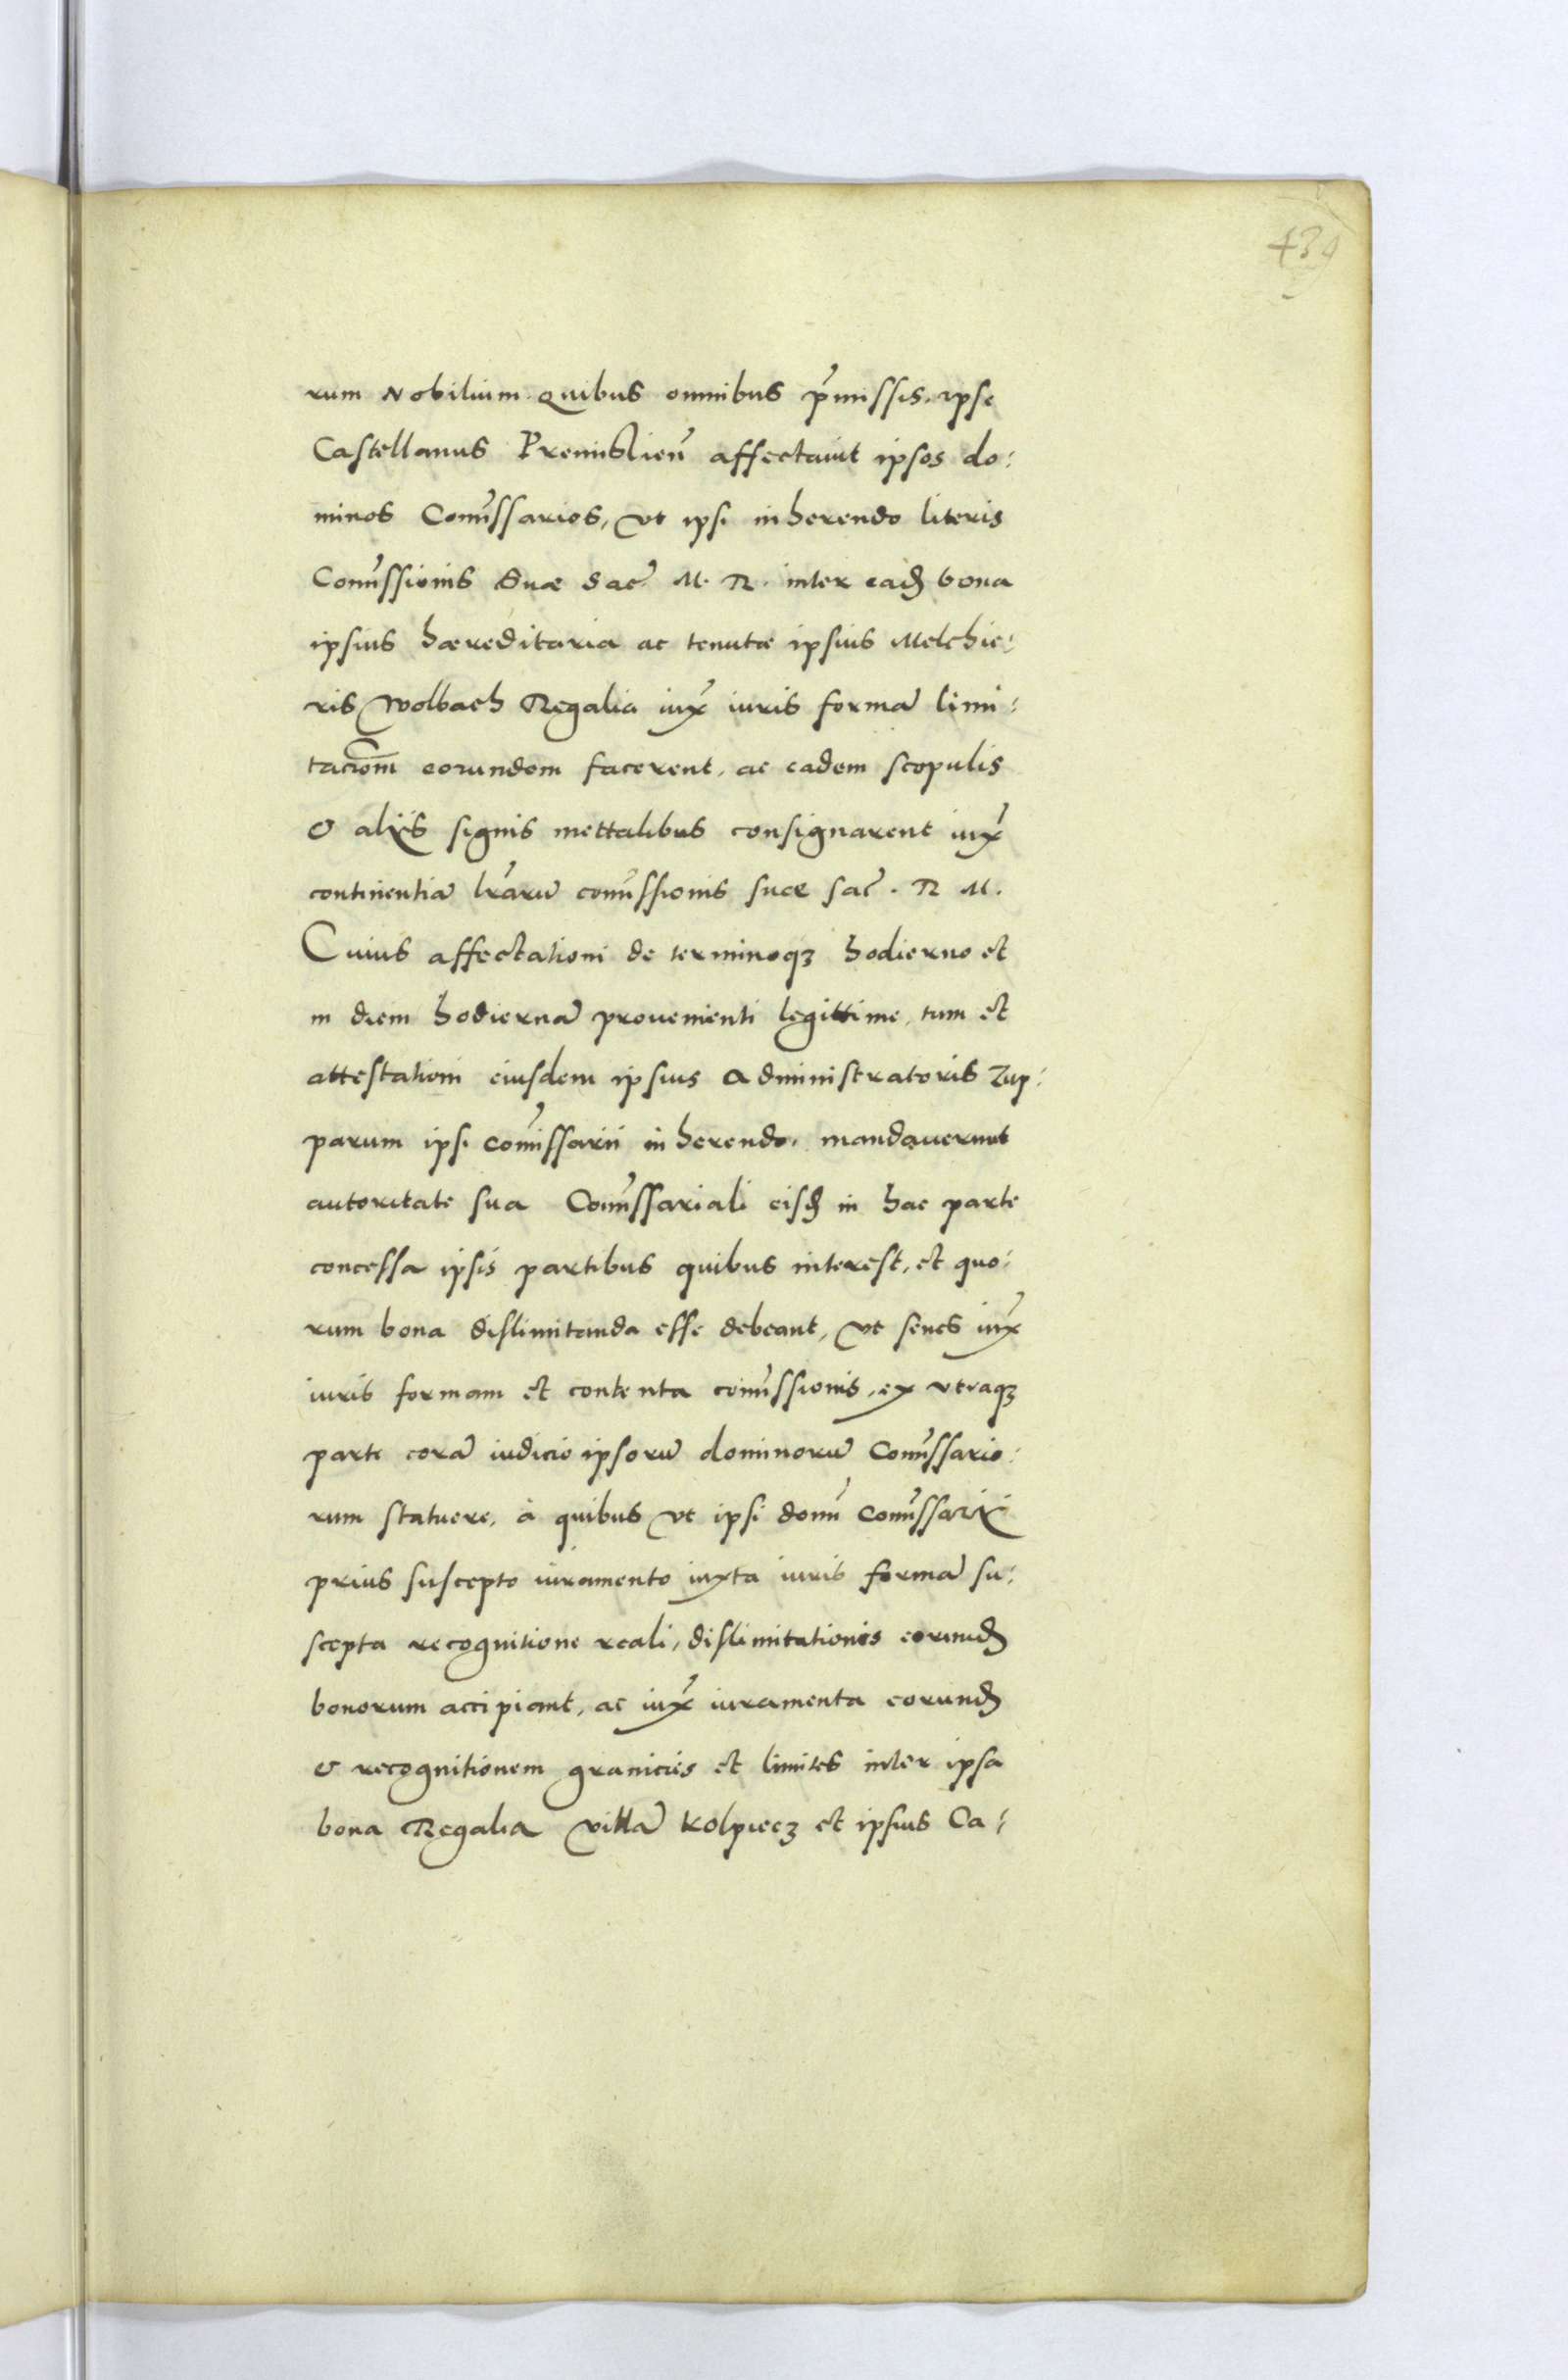 434
rum Nobilium. Quibus omnibus p̃missis. ipse
Castellanus Premislieñ affectauit ipsos do:
minos Comĩssarios, vt ipsi inherendo literis
Comĩssionis Suæ Sac̃ M. R. inter eadẽ bona
ipsius hæreditaria ac tenutæ ipsius Melchio:
ris Wolbach Regalia iux̃ iuris formã limi:
tacionẽm eorundem facerent, ac eadem scopulis
& alijs signis mettalibus consignarent iux̃
continentiã lr̃arũ comĩssionis suæ sac̃. R M.
Cuius affectationi de terminoqȝ hodierno et
in diem hodiernã prouenienti legittime, tum et
attestationi eiusdem ipsius Administratoris Zup:
parum ipsi comĩssarii inherendo, mandauerunt
autoritate sua Comĩssariali eisdẽ in hac parte
concessa ipsis partibus quibus interest, et quo:
rum bona dislimitanda esse debeant, vt senes iux̃
iuris formam et contenta comĩssionis, ex vtraqȝ
parte corã iudicio ipsorũ dominorũ Comĩssario:
rum statuere, à quibus vt ipsi domĩ Comĩssarij
prius suscepto iuramento iuxta iuris formã su:
scepta recognitione reali, dislimitationis eorundẽ
bonorum accipiant, ac iux̃ iuramenta eorundẽ
& recognitionem granicies et limites inter ipsa
bona Regalia villã Kolpiecz et ipsius Ca: